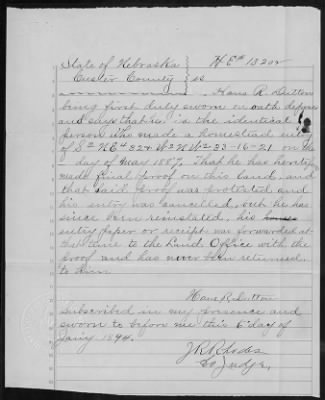 State of Nebraska } H E # 13202
Custer County } ss
Hans R. Dutton
being first duly sworn on oath deposes
and says that he is the identical
person who made a homestead entry
of S2 NE4 & 24 W2 NW2 33-16-21 on the
day of May 1887. That he has heretofore
made final proof on this land, and
that said proof was protested and
his entry was cancelled, but he has
since been reinstated, his
entry paper or receipt was forwarded at
the time to the Land Office with the
proof and has never been returned
to him
Hans R. Dutton
Subscribed in my presence and
sworn to before me this 5 day of
Jany 1894.
J R Rhodes
Co Judge,